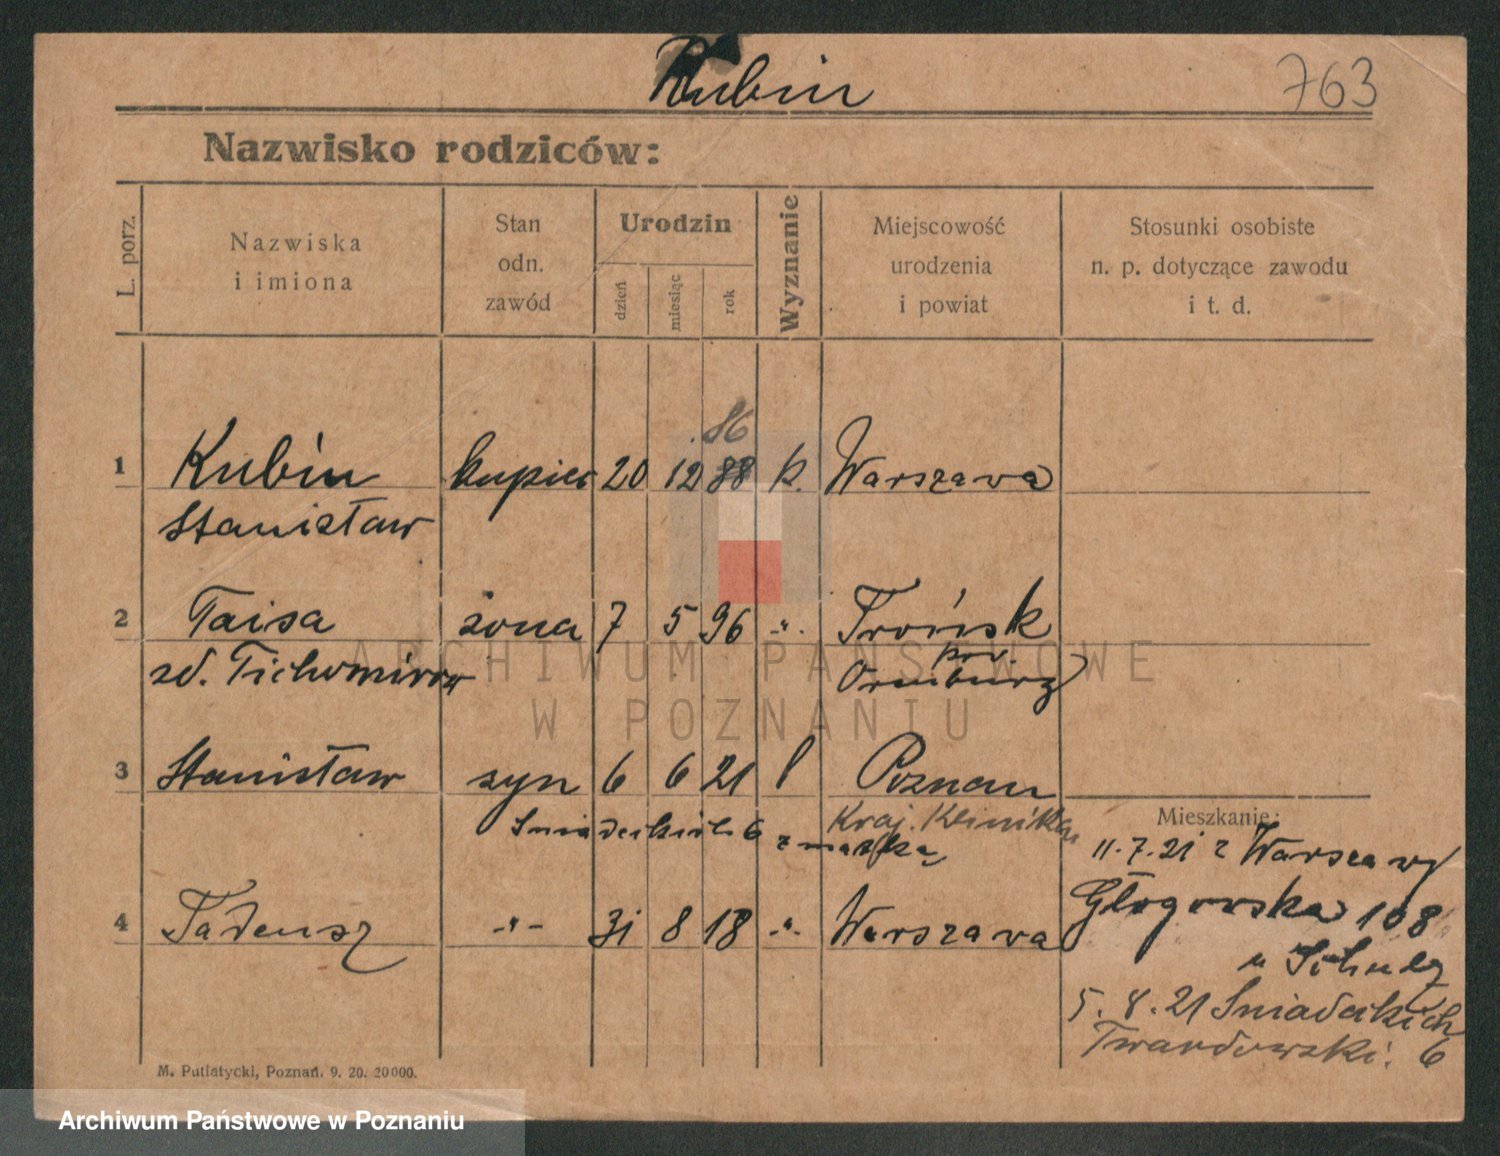 Kubin
763
Nazwisko rodziców:
L. porz.
Nazwiska
i imiona
Stan
odn.
zawód
Urodzin
dzień
miesiąc
rok
Wyznanie
Miejscowość
urodzenia
i powiat
Stosunki osobiste
n. p. dotyczące zawodu
i t. d.
86
1 Kubin kupiec 20 12 88 k. Warszawa
Stanisław
2 Taisa żona 7 5 96 -"- Trońsk
pow.
zd. Tichomirow Orenburg
3 Stanisław syn 6 6 21 Poznan
Sniadeckich 6 z matką Kraj. Klinika
Mieszkanie:
11.7.21 z Warszawy
Głogowska 108
4 Tadeusz -"- 31 8 18 -"- Warszawa
u Schulz
5.8.21 Sniadeckich
Twardowski. 6
M. Putiatycki, Poznań. 9. 20. 20000.
ARCHIWUM PAŃSTWOWE
W POZNANIU
Archiwum Państwowe w Poznaniu